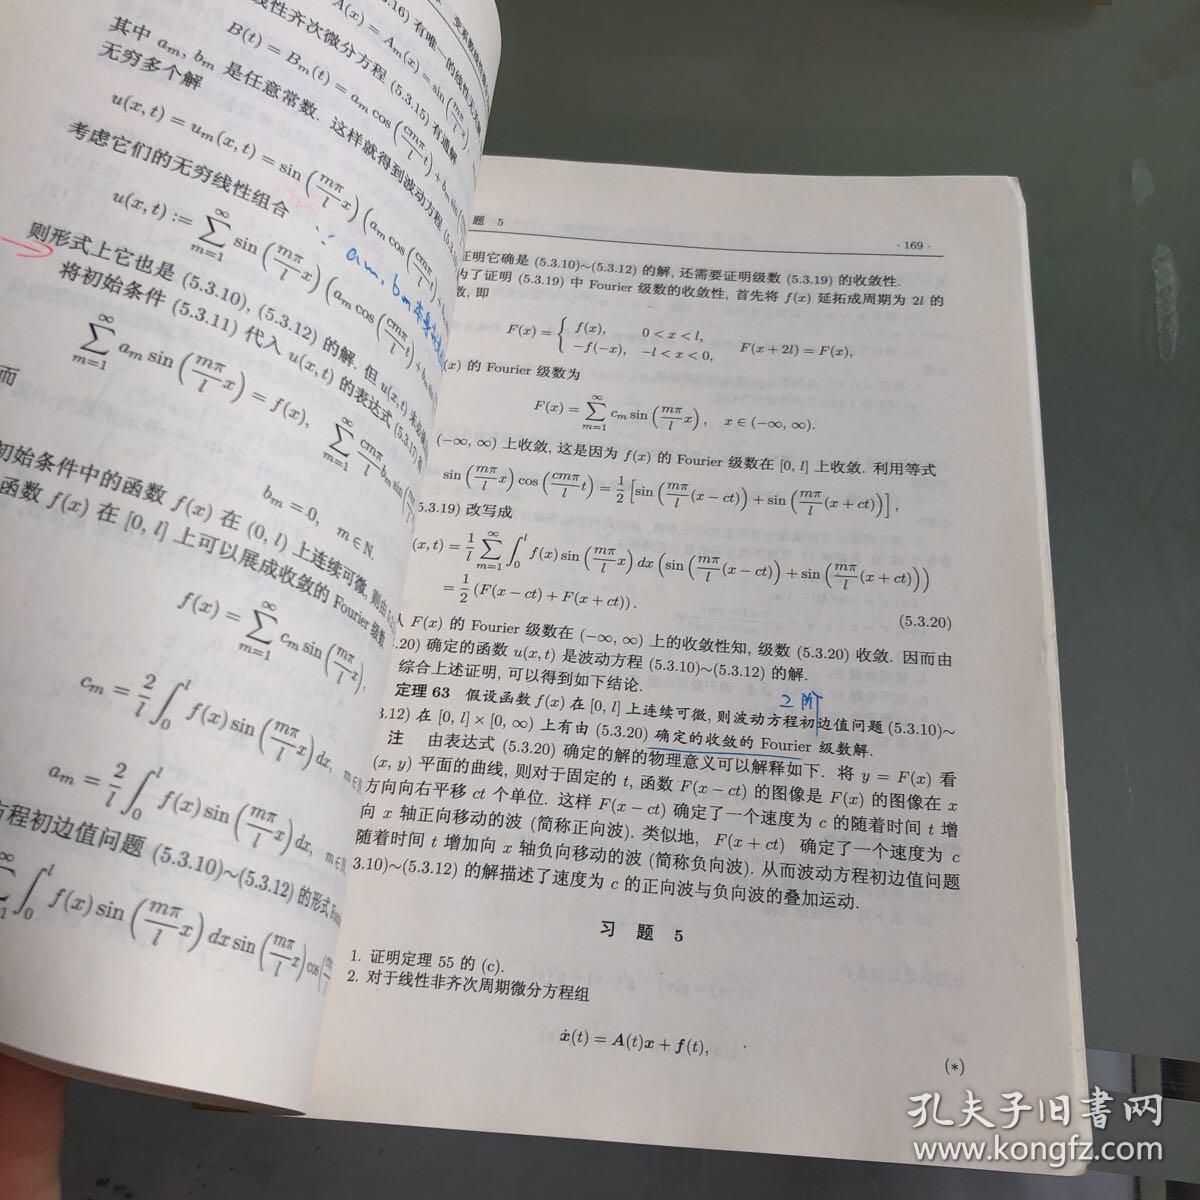 (5.3.16) 有唯一的线性无关解
A(x) = A_m(x) = sin(mπ/l x)
线性齐次微分方程 (5.3.15) 有通解
B(t) = B_m(t) = a_m cos(cmπ/l t) + b_m sin
其中 a_m, b_m 是任意常数. 这样就得到波动方程
无穷多个解
u(x,t) = u_m(x,t) = sin(mπ/l x)(a_m cos(cmπ/l t) + b_m
考虑它们的无穷线性组合
u(x,t) := ∑_{m=1}^{∞} sin(mπ/l x)(a_m cos(cmπ/l t) + b_m sin
∵ a_m, b_m
则形式上它也是 (5.3.10), (5.3.12) 的解. 但 u(x,t) 未必满足
将初始条件 (5.3.11) 代入 u(x,t) 的表达式 (5.3.17)
∑_{m=1}^{∞} a_m sin(mπ/l x) = f(x), ∑_{m=1}^{∞} cmπ/l b_m sin(
而
b_m = 0, m∈N.
初始条件中的函数 f(x) 在 (0, l) 上连续可微, 则由
函数 f(x) 在 [0, l] 上可以展成收敛的 Fourier 级数
f(x) = ∑_{m=1}^{∞} c_m sin(mπ/l x),
c_m = 2/l ∫_0^l f(x) sin(mπ/l x) dx, m∈N
a_m = 2/l ∫_0^l f(x) sin(mπ/l x) dx, m∈N
方程初边值问题 (5.3.10)~(5.3.12) 的形式
∫_0^l f(x) sin(mπ/l x) dx sin(mπ/l x) cos(
题 5
· 169 ·
证明它确是 (5.3.10)~(5.3.12) 的解, 还需要证明级数 (5.3.19) 的收敛性.
为了证明 (5.3.19) 中 Fourier 级数的收敛性, 首先将 f(x) 延拓成周期为 2l 的
数, 即
F(x) = { f(x), 0 < x < l,
−f(−x), −l < x < 0, F(x+2l) = F(x),
(x) 的 Fourier 级数为
F(x) = ∑_{m=1}^{∞} c_m sin(mπ/l x), x∈(−∞, ∞).
(−∞, ∞) 上收敛, 这是因为 f(x) 的 Fourier 级数在 [0, l] 上收敛. 利用等式
sin(mπ/l x) cos(cmπ/l t) = 1/2 [sin(mπ/l (x−ct)) + sin(mπ/l (x+ct))],
5.3.19) 改写成
(x,t) = 1/l ∑_{m=1}^{∞} ∫_0^l f(x) sin(mπ/l x) dx (sin(mπ/l (x−ct)) + sin(mπ/l (x+ct)))
= 1/2 (F(x−ct) + F(x+ct)).
(5.3.20)
F(x) 的 Fourier 级数在 (−∞, ∞) 上的收敛性知, 级数 (5.3.20) 收敛. 因而由
.20) 确定的函数 u(x,t) 是波动方程 (5.3.10)~(5.3.12) 的解.
综合上述证明, 可以得到如下结论.
2阶
定理 63 假设函数 f(x) 在 [0, l] 上连续可微, 则波动方程初边值问题 (5.3.10)~
3.12) 在 [0, l] × [0, ∞) 上有由 (5.3.20) 确定的收敛的 Fourier 级数解.
注 由表达式 (5.3.20) 确定的解的物理意义可以解释如下. 将 y = F(x) 看
(x, y) 平面的曲线, 则对于固定的 t, 函数 F(x − ct) 的图像是 F(x) 的图像在 x
方向向右平移 ct 个单位. 这样 F(x − ct) 确定了一个速度为 c 的随着时间 t 增
向 x 轴正向移动的波 (简称正向波). 类似地, F(x + ct) 确定了一个速度为 c
随着时间 t 增加向 x 轴负向移动的波 (简称负向波). 从而波动方程初边值问题
3.10)~(5.3.12) 的解描述了速度为 c 的正向波与负向波的叠加运动.
习 题 5
1. 证明定理 55 的 (c).
2. 对于线性非齐次周期微分方程组
ẋ(t) = A(t)x + f(t),
(*)
孔夫子旧书网
www.kongfz.com